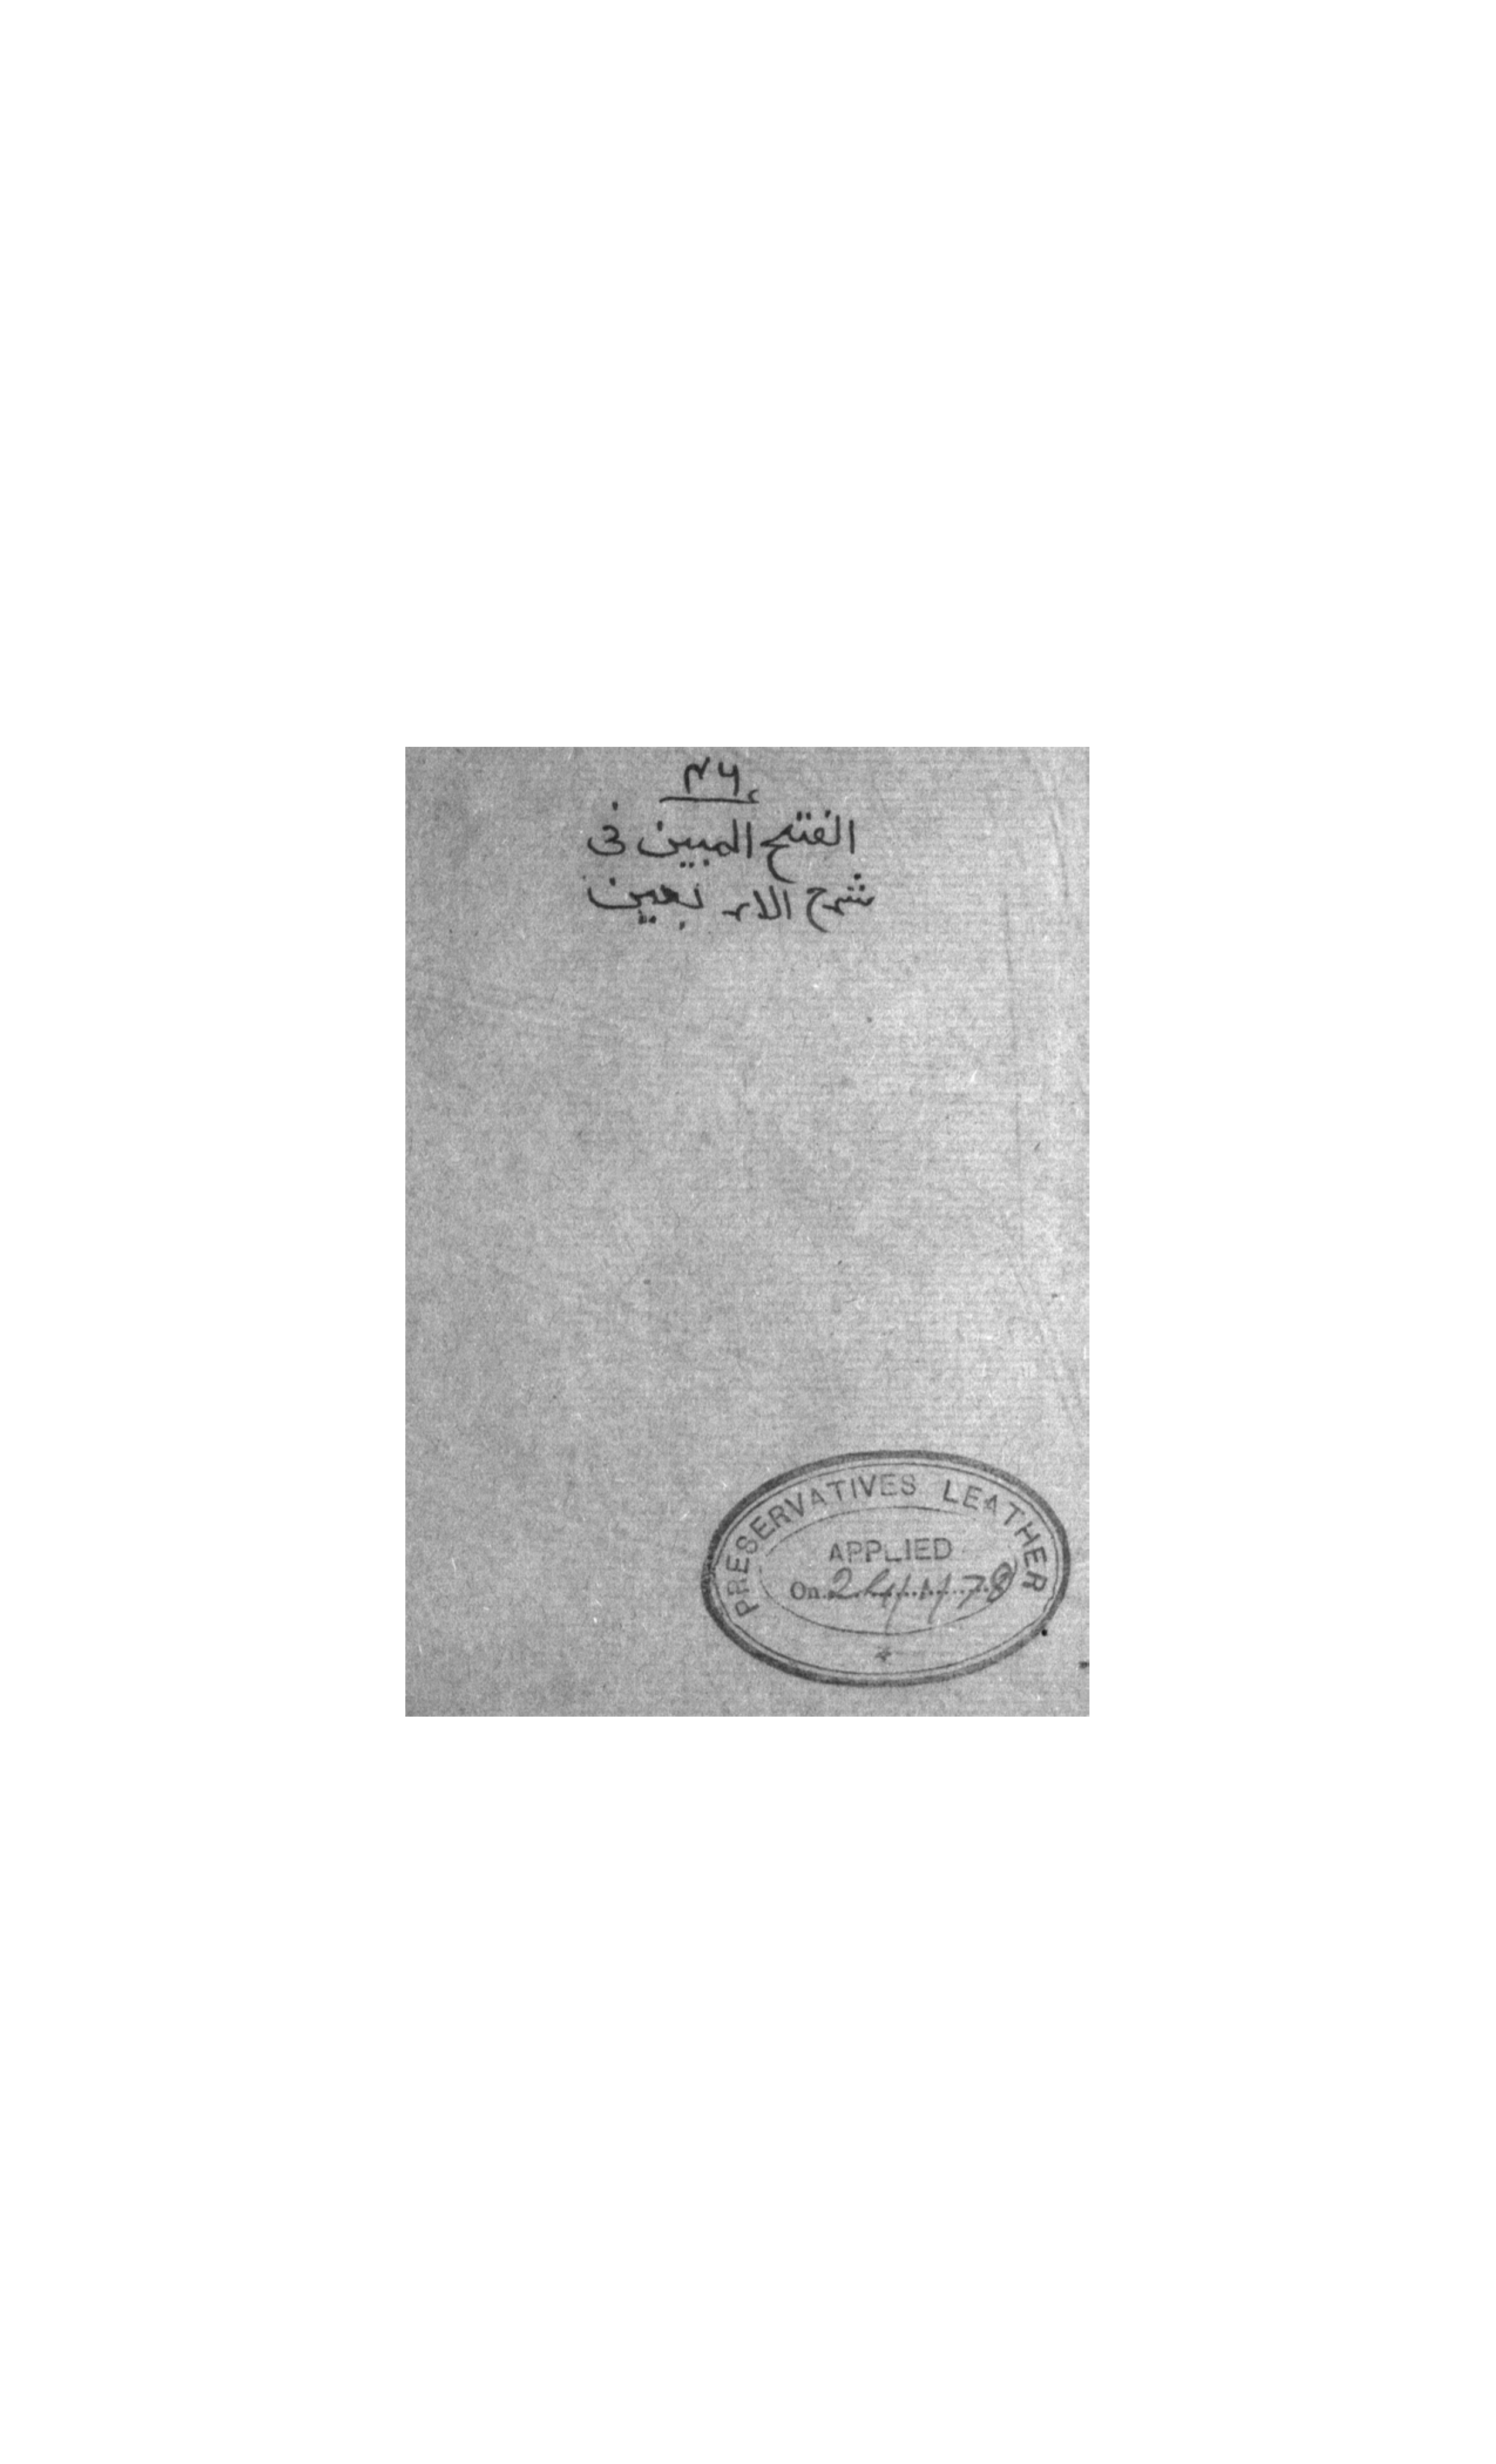 ٤٦
الفتح المبين فى
شرح الاربعين
PRESERVATIVES LEATHER
APPLIED
On